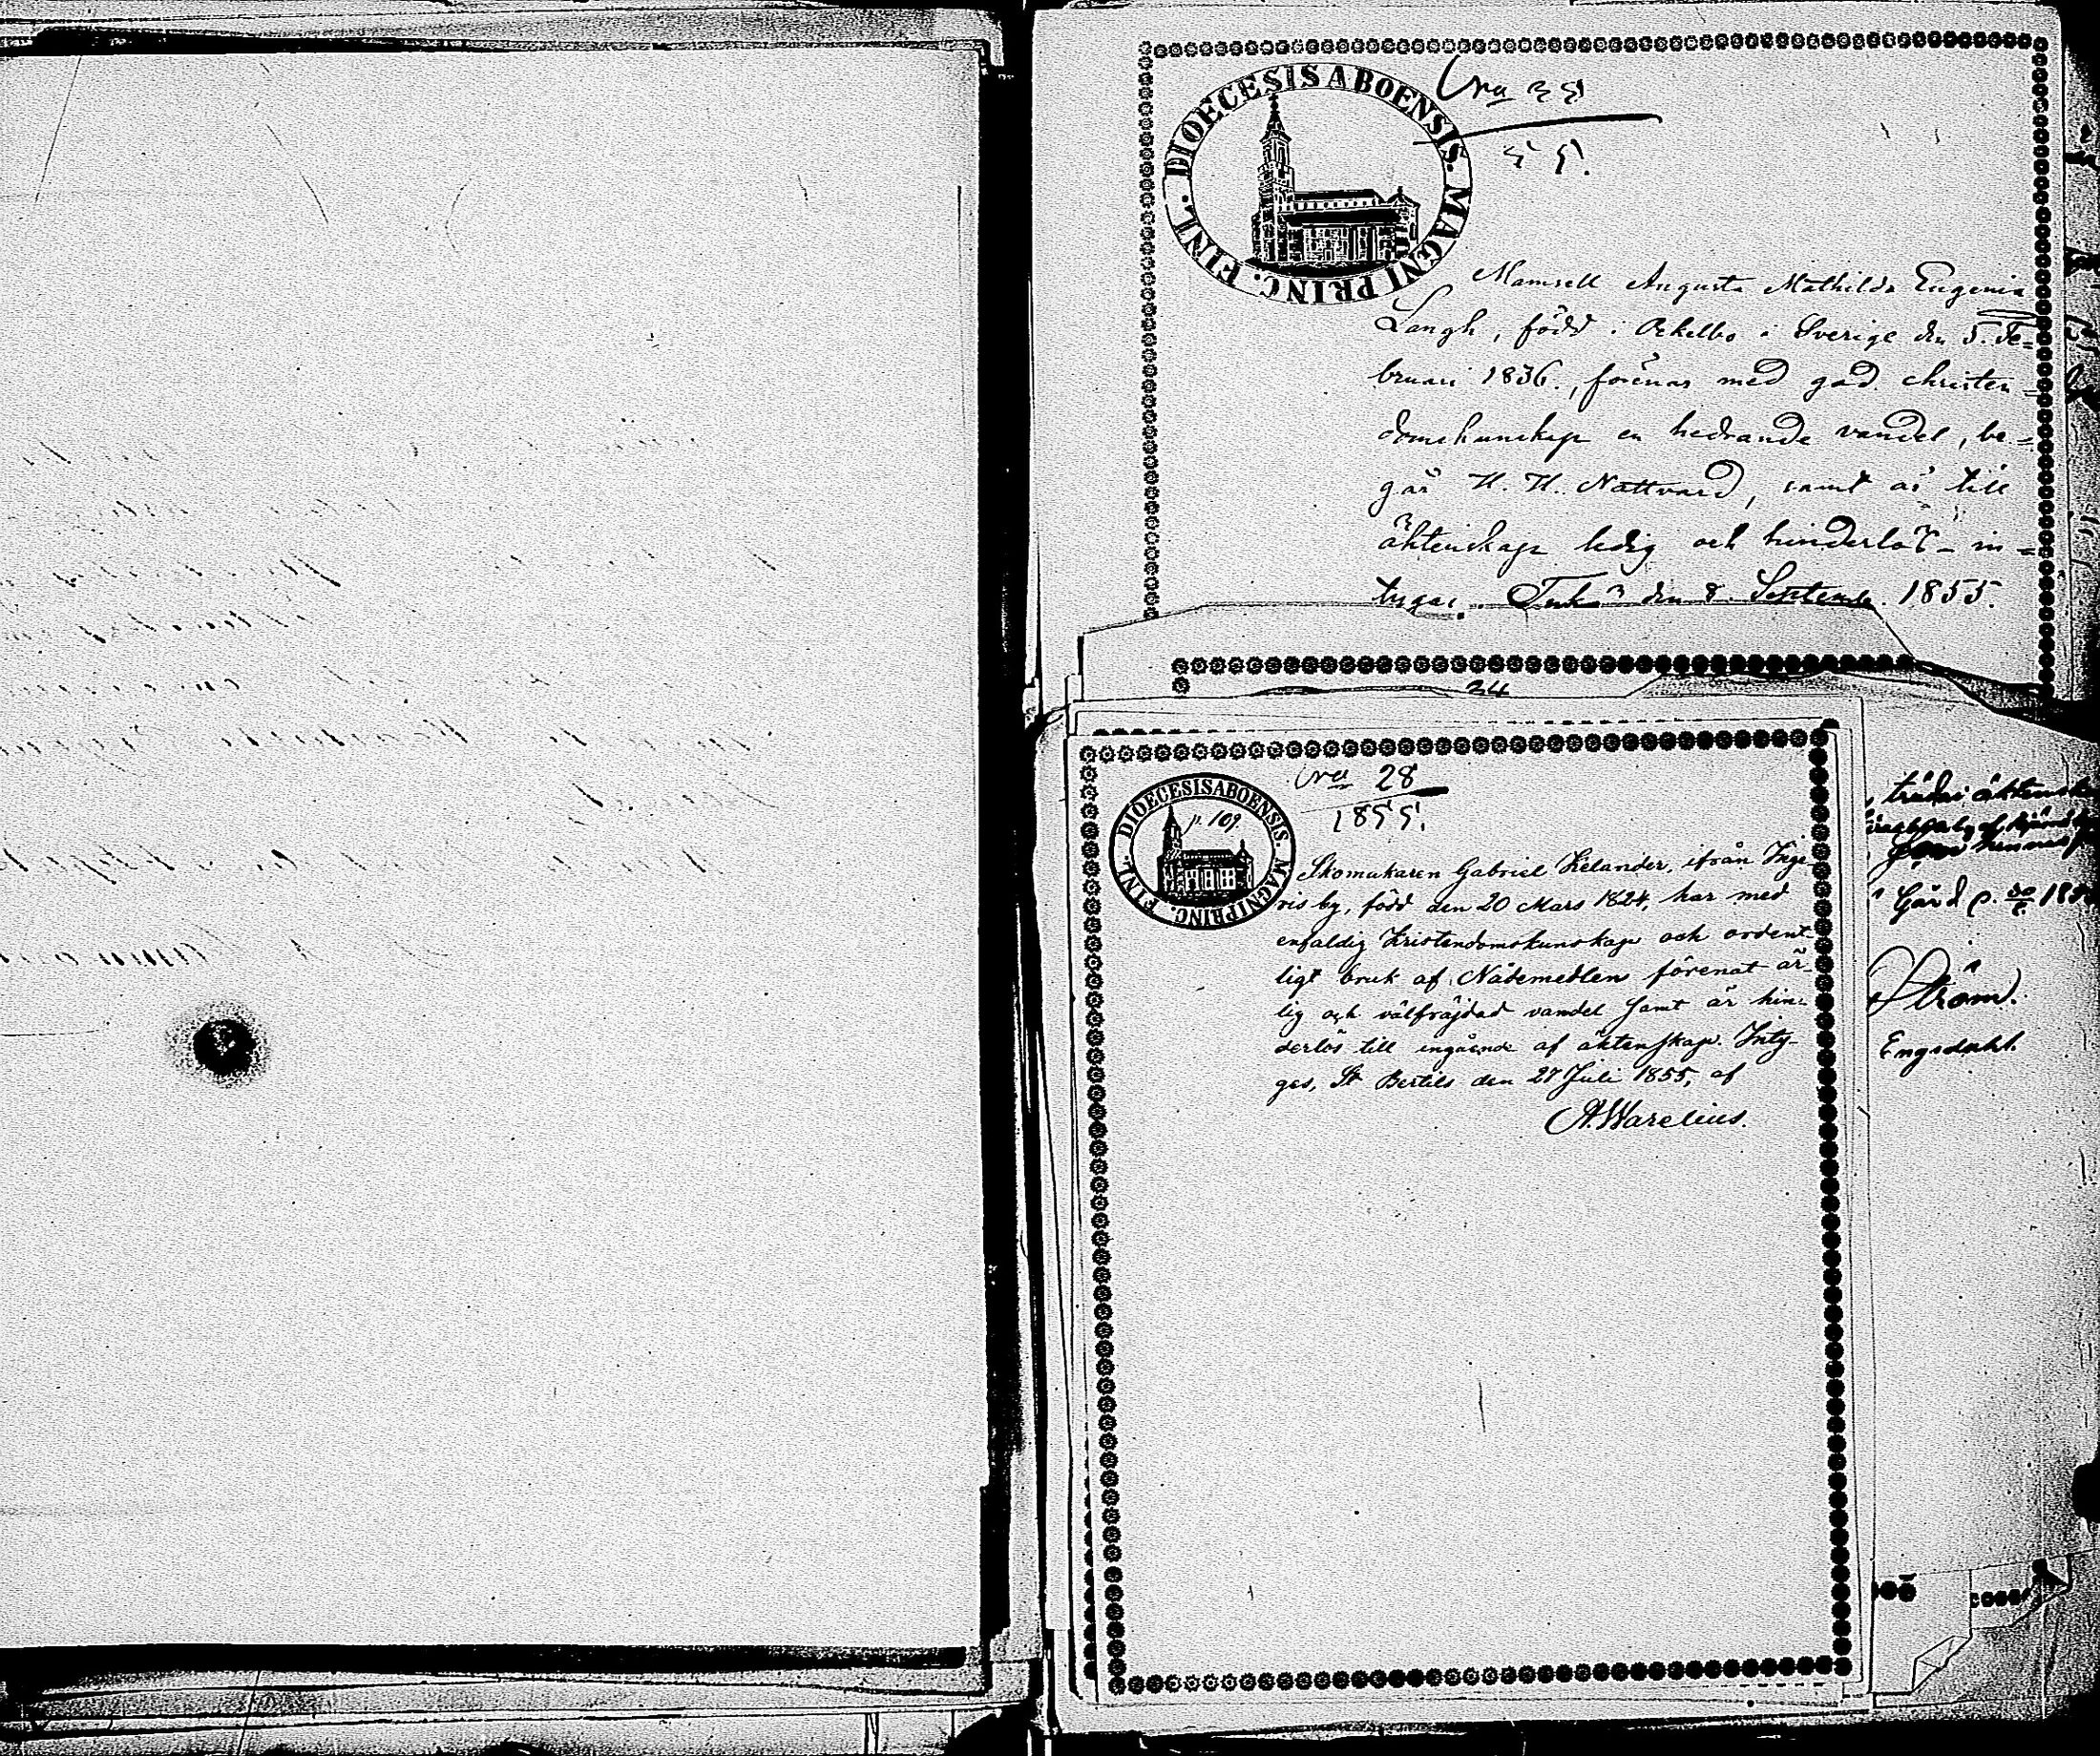 DIOECESIS ABOENSIS. MAGNI PRINC. FINL.
Mamsell Augusta Mathilda Eugenia
Langh, född i Ockelbo i Sverige den 5. Fe=
bruari 1836., förenar med god christen=
domskunskap en hedrande vandel, be=
går H. H. Nattvard, samt är till
äktenskap ledig och hinderlös in=
tygar. den 8. Septemb. 1855.
24
DIOECESIS ABOENSIS. MAGNI PRINC. FINL.
p. 109.
28
1855.
Skomakaren Gabriel Helander, ifrån Inge-
ris by, född den 20 Mars 1824, har med
enfaldig Kristendomskunskap och ordent-
ligt bruk af Nådemedlen förenat är-
lig och välfräjdad vandel samt är hin-
derlös till ingående af äktenskap. Inty-
gas, St Bertils den 27 Juli 1855, af
A. Warelius.
träda i äktensk
hennes
Gård
Ström.
Engsdahl.